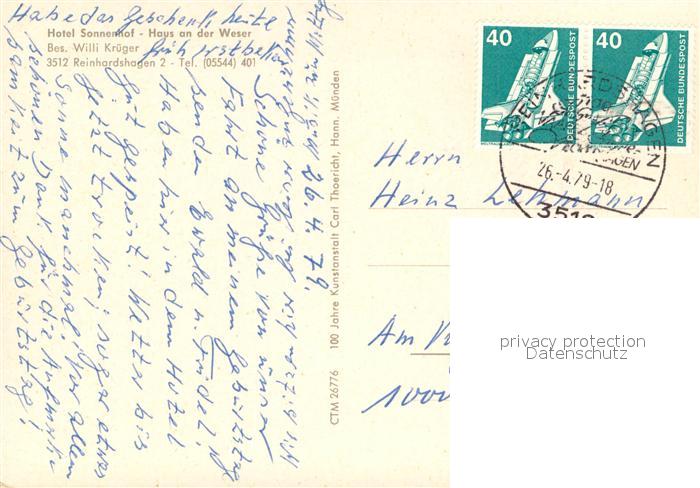 Habe das Geschenk heute
früh erst be
Hotel Sonnenhof - Haus an der Weser
Bes. Willi Krüger
3512 Reinhardshagen 2 - Tel. (05544) 401
26.4.79.
Schöne Grüße von unser
Fahrt an meinem Geburtstag
senden Ewald u. Trudel.
Haben hier in dem Hotel
gut gespeist! Wetter bis
jetzt trocken, sogar etwas
Sonne manchmal! Vor allem
schönen Dank für die Aufmerk-
samkeit zum Geburtstag!
CTM 26776 100 Jahre Kunstanstalt Carl Thoericht, Hann. Münden
40
DEUTSCHE BUNDESPOST
40
DEUTSCHE BUNDESPOST
26.-4.79-18
3512
Herrn
Heinz Lehmann
Am
1000
privacy protection
Datenschutz